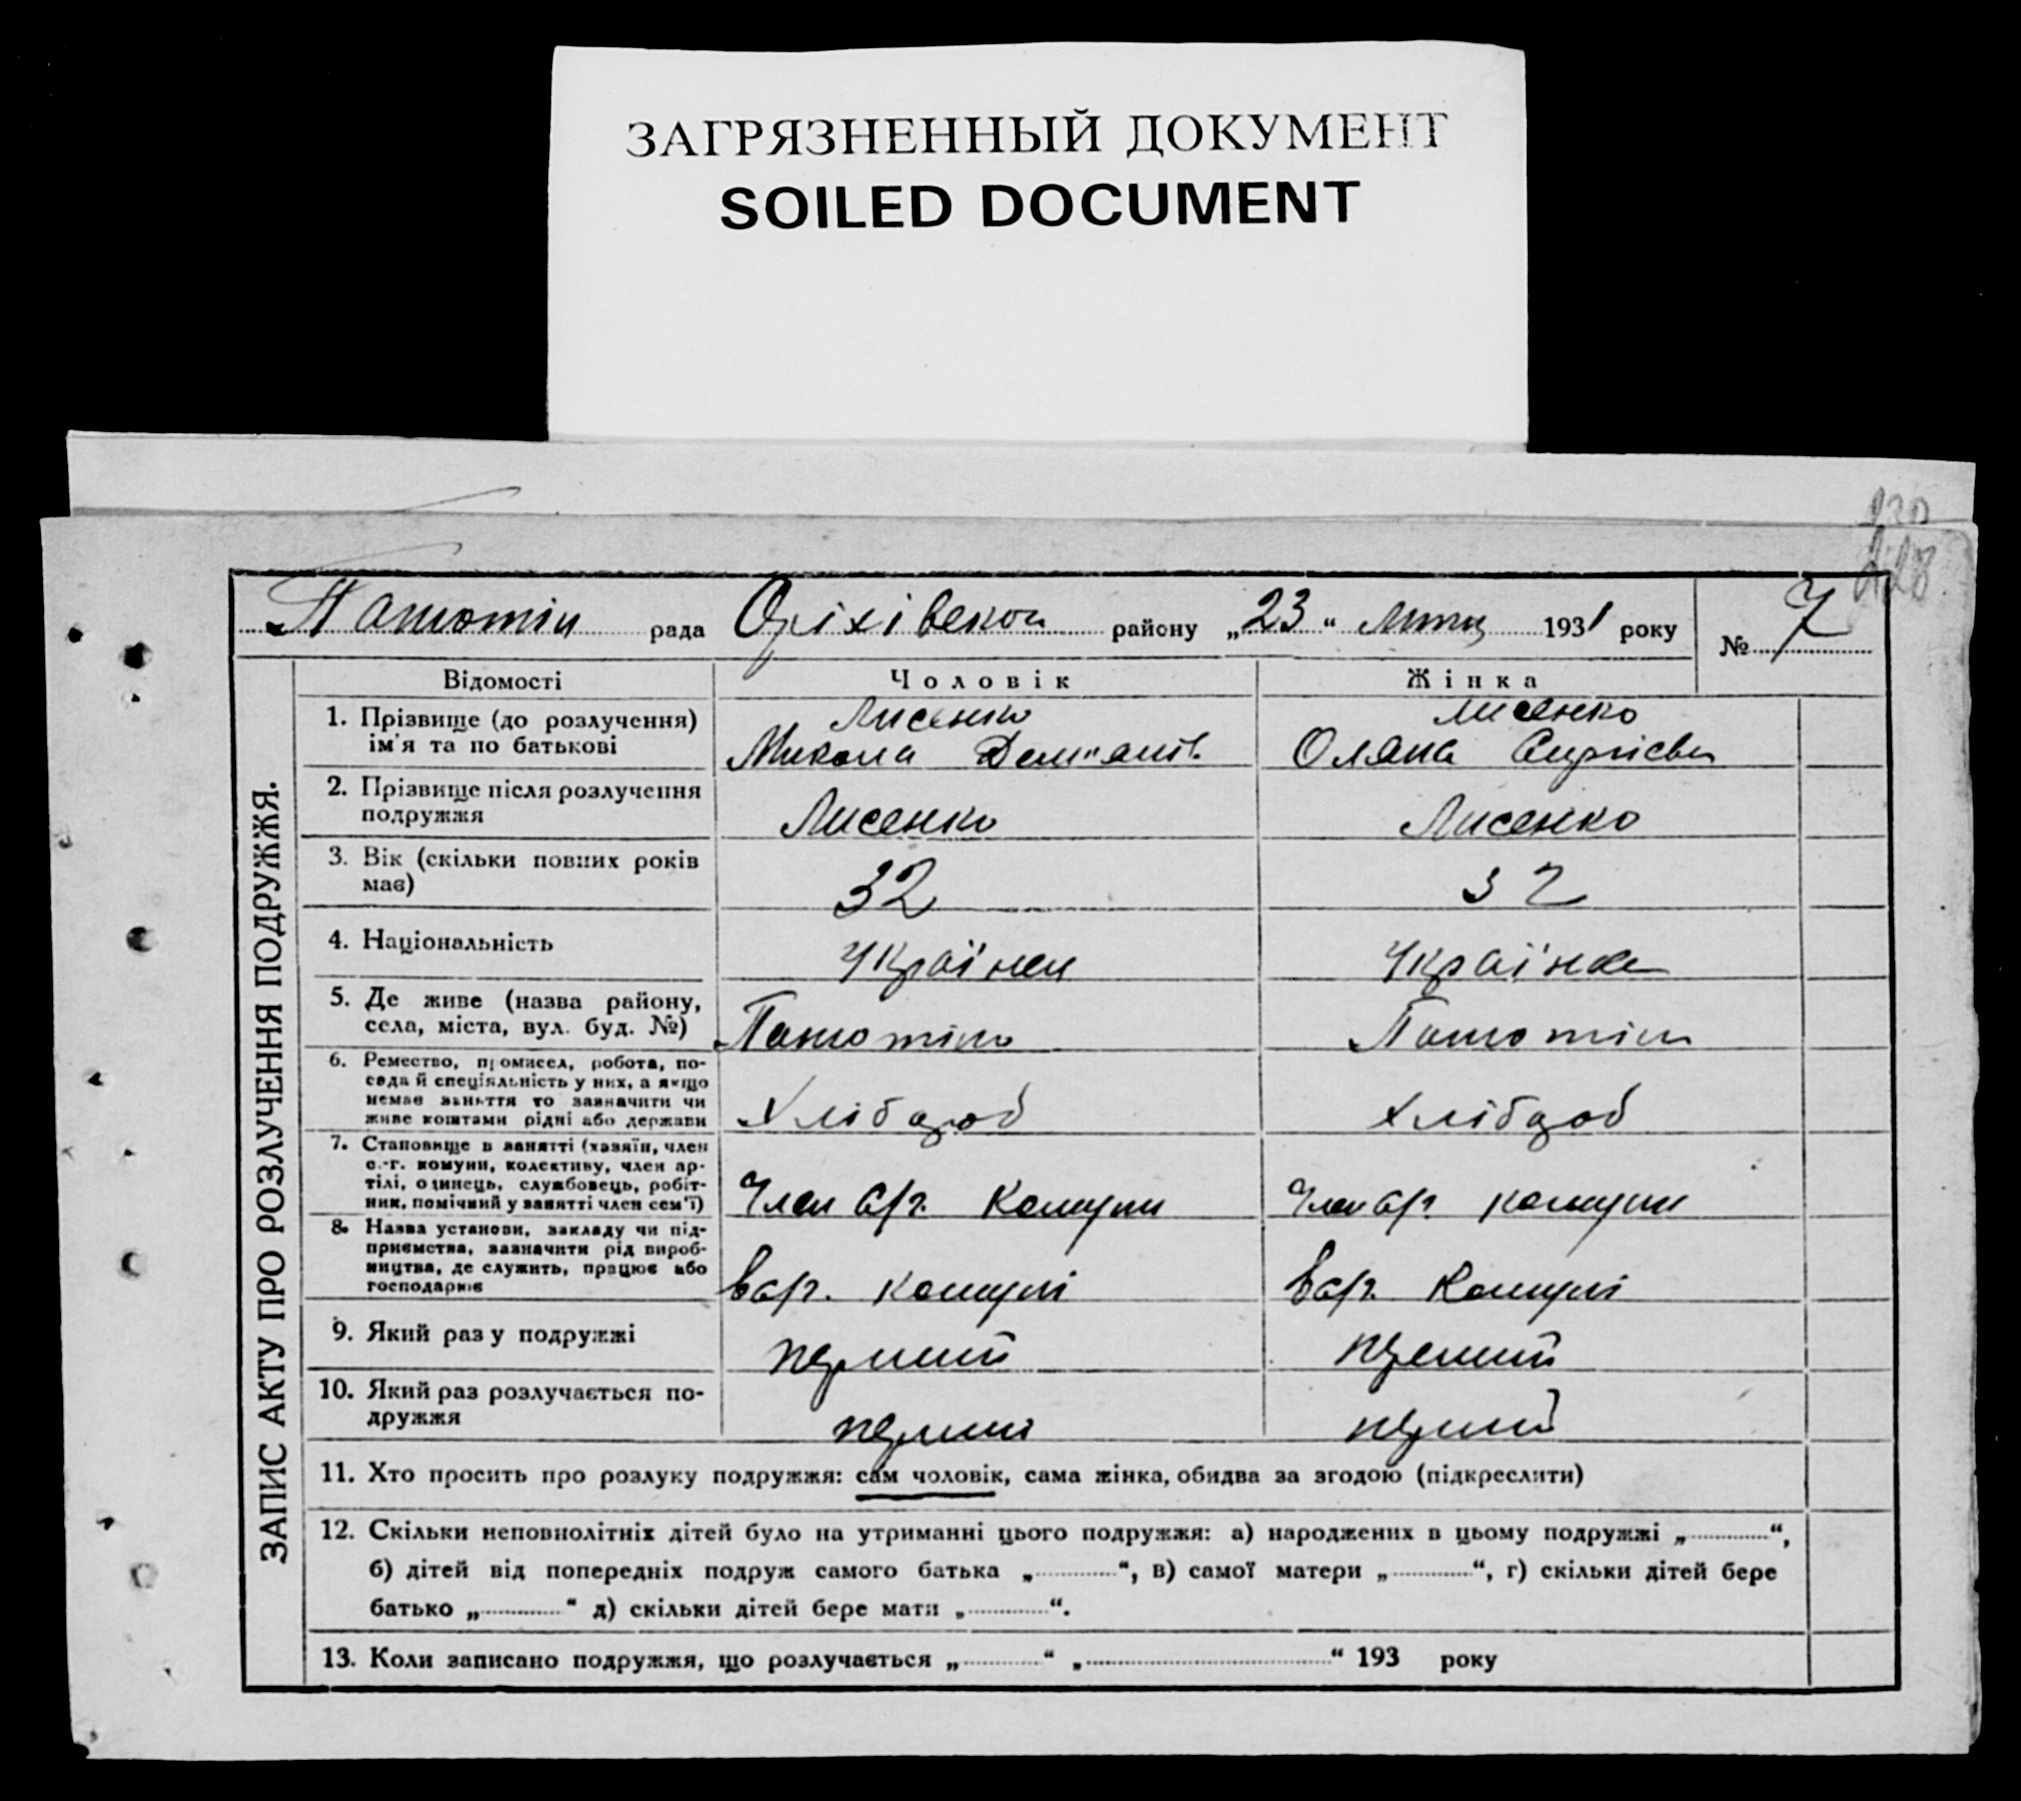 ЗАГРЯЗНЕННЫЙ ДОКУМЕНТ
SOILED DOCUMENT
228
рада Оріхівської району „23“ 1931 року № 7
ЗАПИС АКТУ ПРО РОЗЛУЧЕННЯ ПОДРУЖЖЯ.
Відомості Чоловік Жінка
1. Прізвище (до розлучення) Лисенко Лисенко
ім'я та по батькові Микола Оляна
2. Прізвище після розлучення
подружжя Лисенко Лисенко
3. Вік (скільки повних років
має) 32 32
4. Національність Українец Українка
5. Де живе (назва району,
села, міста, вул. буд. №)
6. Ремество, промисел, робота, по-
сада й спеціяльність у них, а якщо
немає заняття то зазначити чи
живе коштами рідні або держави Хлібороб Хлібороб
7. Становище в занятті (хазяїн, член
с.-г. комуни, колективу, член ар-
тілі, одинець, службовець, робіт-
ник, помічний у занятті член сем'ї) Член с/г. Комуни Член с/г. комуни
8. Назва установи, закладу чи під-
приємства, зазначити рід вироб-
ництва, де служить, працює або
господарює В с/г. комуні В с/г. Комуні
9. Який раз у подружжі перший перший
10. Який раз розлучається по-
дружжя перший перший
11. Хто просить про розлуку подружжя: сам чоловік, сама жінка, обидва за згодою (підкреслити)
12. Скільки неповнолітніх дітей було на утриманні цього подружжя: а) народжених в цьому подружжі „............“,
б) дітей від попередніх подруж самого батька „............“, в) самої матери „............“, г) скільки дітей бере
батько „............“ д) скільки дітей бере мати „............“.
13. Коли записано подружжя, що розлучається „............“ „..............................“ 193 року